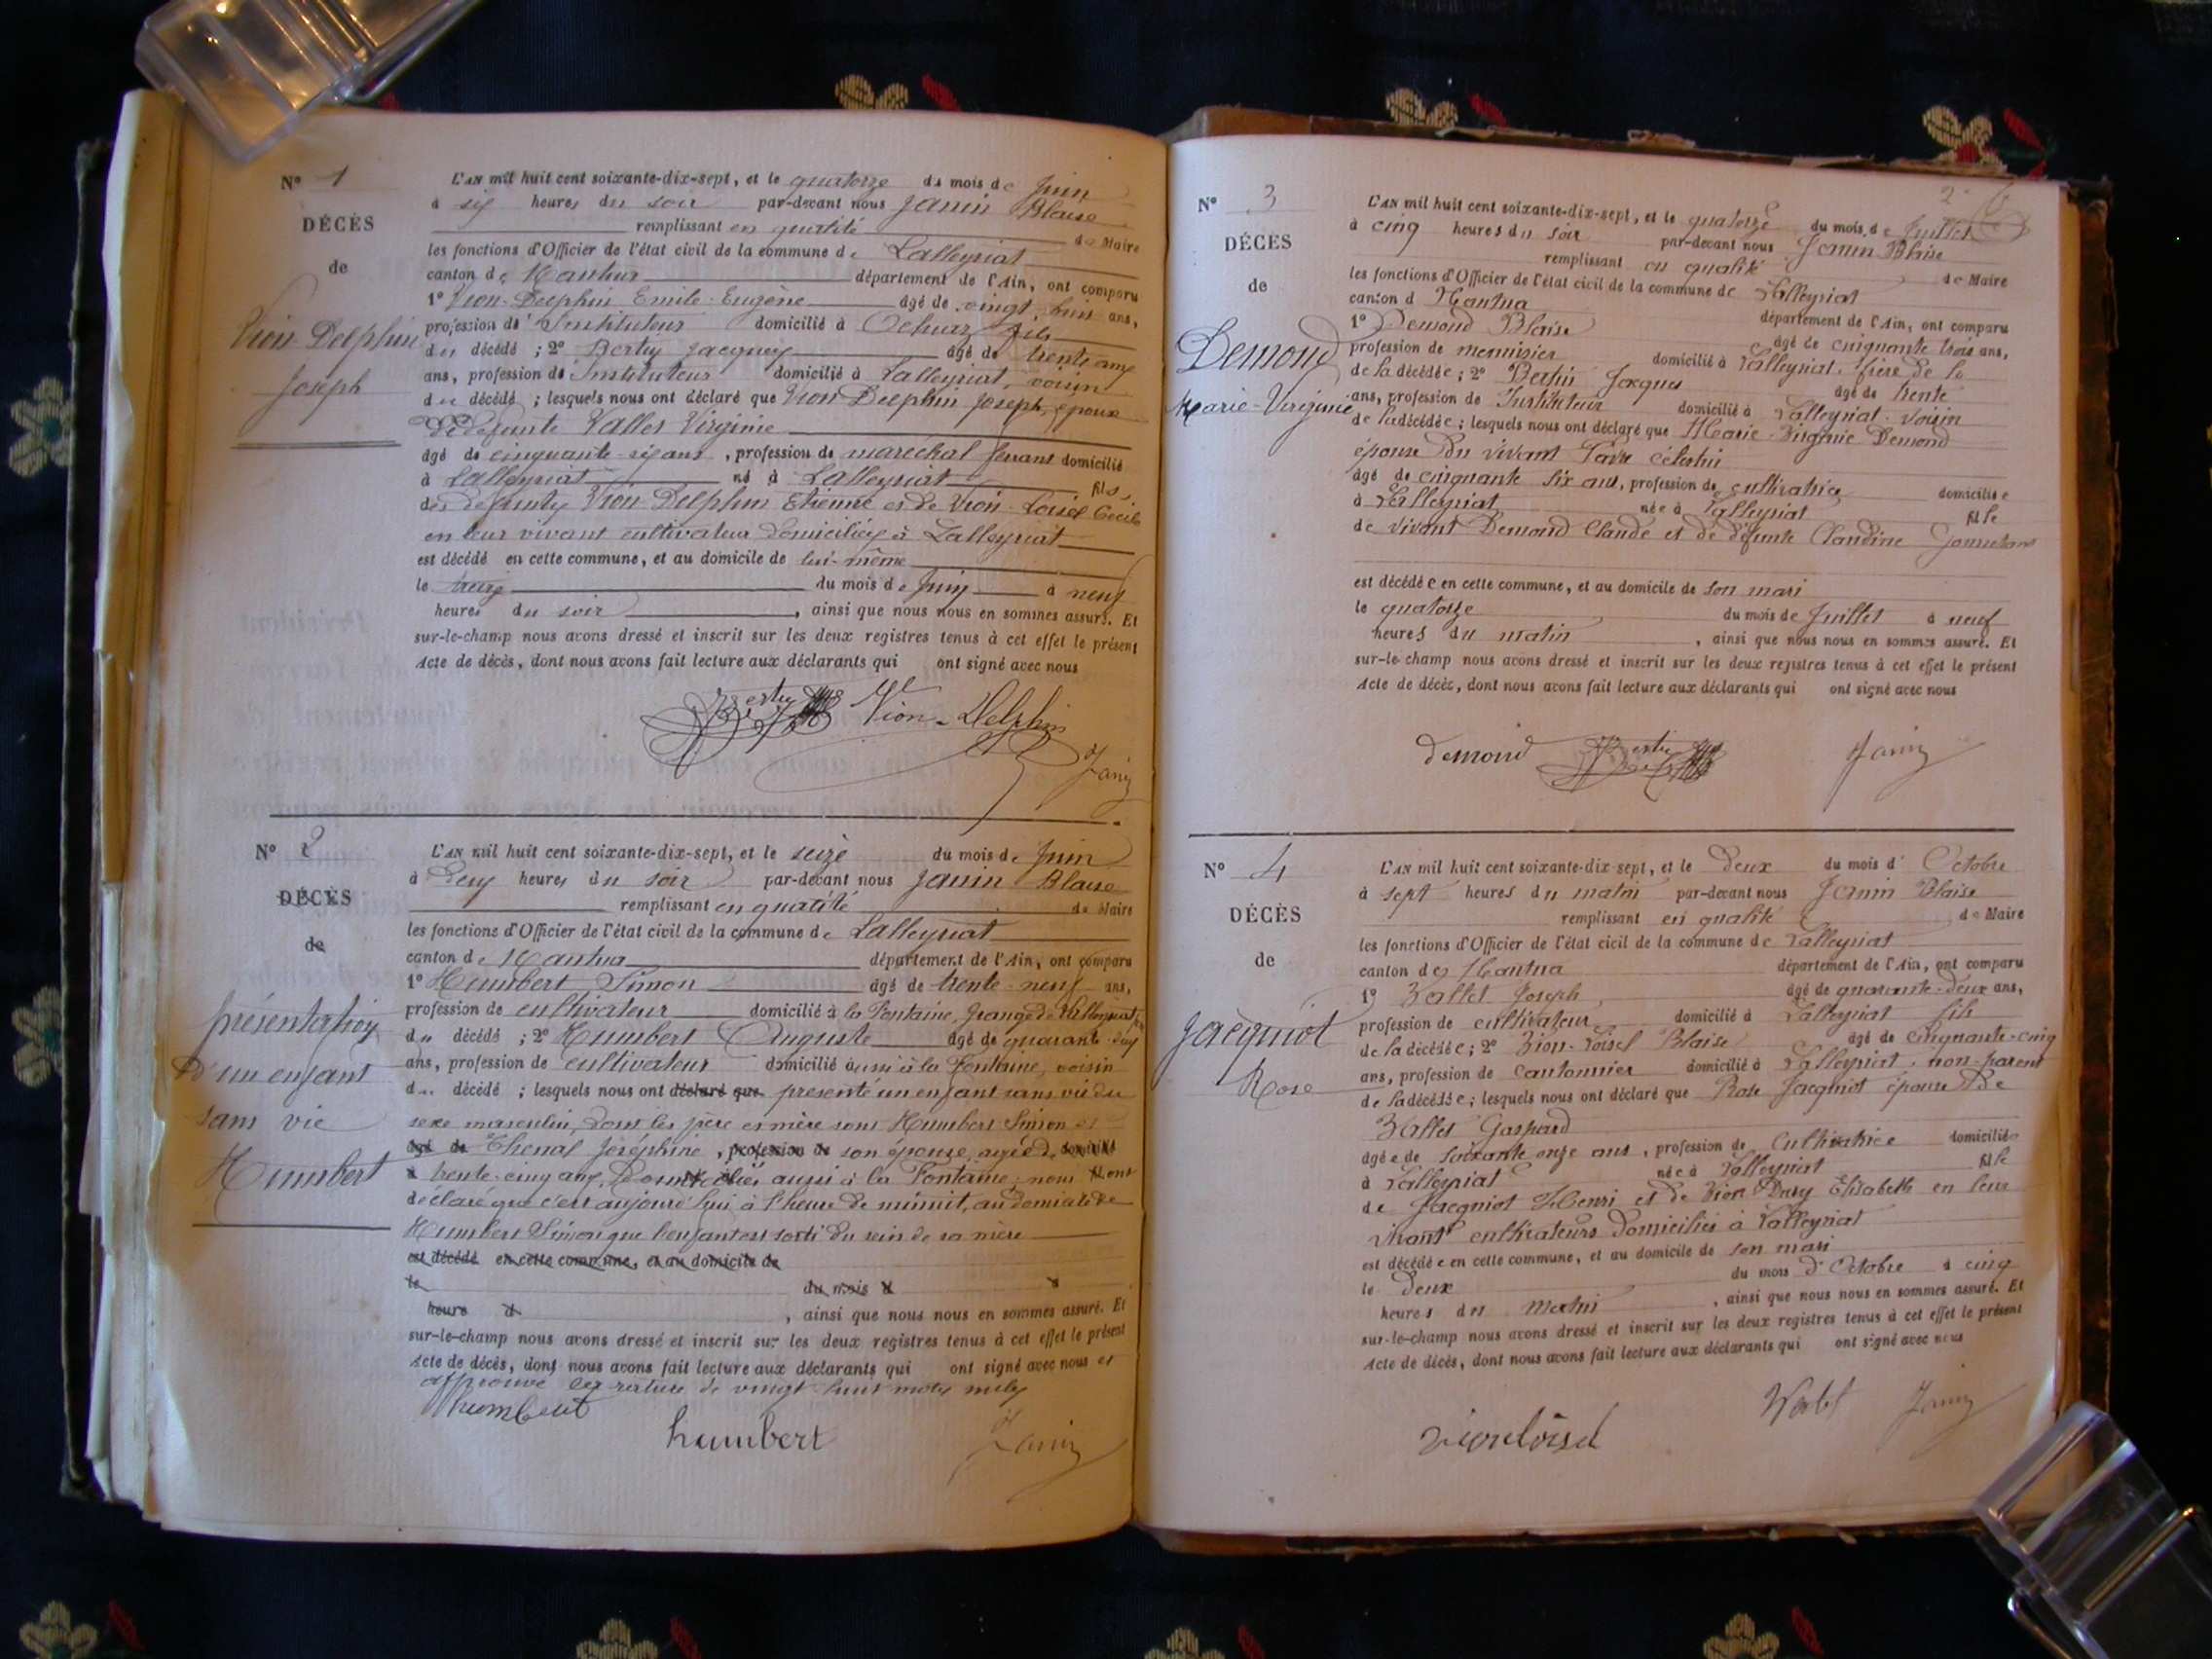 N° 1
DÉCÈS
de
Vion-Delphin
Joseph
L'AN mil huit cent soixante-dix-sept, et le quatorze du mois de Juin
à six heures du soir par-devant nous Janin Blaise
remplissant en qualité de Maire
les fonctions d'Officier de l'état civil de la commune de Lalleyriat
canton de Nantua département de l'Ain, ont comparu
1° Vion-Delphin Emile-Eugène âgé de vingt-huit ans,
profession d'Instituteur domicilié à fils
du décédé ; 2° Bertin Jacques âgé de trente ans
ans, profession de Instituteur domicilié à Lalleyriat, voisin
du décédé ; lesquels nous ont déclaré que Vion Delphin Joseph, époux
de défunte Vallet Virginie
âgé de cinquante-six ans, profession de maréchal ferrant domicilié
à Lalleyriat né à Lalleyriat fils
des defunts Vion Delphin Etienne et de Vion-Loisel Cécile
en leur vivant cultivateur domiciliés à Lalleyriat
est décédé en cette commune, et au domicile de lui-même
le treize du mois de Juin à neuf
heures du soir, ainsi que nous nous en sommes assuré. Et
sur-le-champ nous avons dressé et inscrit sur les deux registres tenus à cet effet le présent
Acte de décès, dont nous avons fait lecture aux déclarants qui ont signé avec nous
Bertin Vion-Delphin
Janin
N° 2
DÉCÈS
de
présentation
d'un enfant
sans vie
Humbert
L'AN mil huit cent soixante-dix-sept, et le seize du mois de Juin
à deux heures du soir par-devant nous Janin Blaise
remplissant en qualité de Maire
les fonctions d'Officier de l'état civil de la commune de Lalleyriat
canton de Nantua département de l'Ain, ont comparu
1° Humbert Simon âgé de trente-neuf ans,
profession de cultivateur domicilié à la Fontaine, Grange de Lalleyriat
du décédé ; 2° Humbert Auguste âgé de quarante-six
ans, profession de cultivateur domicilié aussi à la Fontaine, voisin
d.. décédé ; lesquels nous ont déclaré que presenté un enfant sans vie du
sexe masculin, dont les père et mère sont Humbert Simon et
âgé de Thenal Joséphine, profession de son épouse, agée de domicilié
à trente-cinq ans, Domiciliés aussi à la Fontaine; nous ont
déclaré que c'est aujourd'hui, à l'heure de minuit, au domicile de
Humbert Simon que l'enfant est sorti du sein de sa mère
est décédé en cette commune, et au domicile de
le du mois d à
heure d , ainsi que nous nous en sommes assuré. Et
sur-le-champ nous avons dressé et inscrit sur les deux registres tenus à cet effet le présent
Acte de décès, dont nous avons fait lecture aux déclarants qui ont signé avec nous et
approuvé les rature de vingt huit mots nuls
humbert
humbert Janin
N° 3
DÉCÈS
de
Demond
Marie-Virginie
L'AN mil huit cent soixante-dix-sept, et le quatorze du mois de Juillet
à cinq heures du soir par-devant nous Janin Blaise
remplissant en qualité de Maire
les fonctions d'Officier de l'état civil de la commune de Lalleyriat
canton d Nantua département de l'Ain, ont comparu
1° Demond Blaise âgé de cinquante trois ans,
profession de menuisier domicilié à Lalleyriat, frère de la
de la décédée ; 2° Bertin Jacques âgé de trente
ans, profession de Instituteur domicilié à Lalleyriat, voisin
de la décédée ; lesquels nous ont déclaré que Marie-Virginie Demond
épouse du vivant Célestin
âgé de cinquante six ans, profession de cultivatrice domiciliée
à Lalleyriat née à Lalleyriat fille
de vivant Demond Claude et de défunte Claudine
est décédée en cette commune, et au domicile de son mari
le quatorze du mois de Juillet à neuf
heures du matin, ainsi que nous nous en sommes assuré. Et
sur-le-champ nous avons dressé et inscrit sur les deux registres tenus à cet effet le présent
Acte de décès, dont nous avons fait lecture aux déclarants qui ont signé avec nous
demond Bertin Janin
N° 4
DÉCÈS
de
Jacquiot
Rose
L'AN mil huit cent soixante-dix-sept, et le deux du mois d' Octobre
à sept heures du matin par-devant nous Janin Blaise
remplissant en qualité de Maire
les fonctions d'Officier de l'état civil de la commune de Lalleyriat
canton de Nantua département de l'Ain, ont comparu
1° Vallet Joseph âgé de quarante-deux ans,
profession de cultivateur domicilié à Lalleyriat fils
de la décédée ; 2° Vion-Loisel Blaise âgé de cinquante-cinq
ans, profession de cantonnier domicilié à Lalleyriat, non-parent
de la décédée ; lesquels nous ont déclaré que Rose Jacquiot épouse de
Vallet Gaspard
âgée de soixante onze ans, profession de Cultivatrice domiciliée
à Lalleyriat née à Lalleyriat fille
de Jacquiot Henri et de Vion Dury Elisabeth en leur
vivant cultivateurs domiciliés à Lalleyriat
est décédée en cette commune, et au domicile de son mari
le deux du mois d'Octobre à cinq
heures du matin, ainsi que nous nous en sommes assuré. Et
sur-le-champ nous avons dressé et inscrit sur les deux registres tenus à cet effet le présent
Acte de décès, dont nous avons fait lecture aux déclarants qui ont signé avec nous
vionloisel Vallet Janin